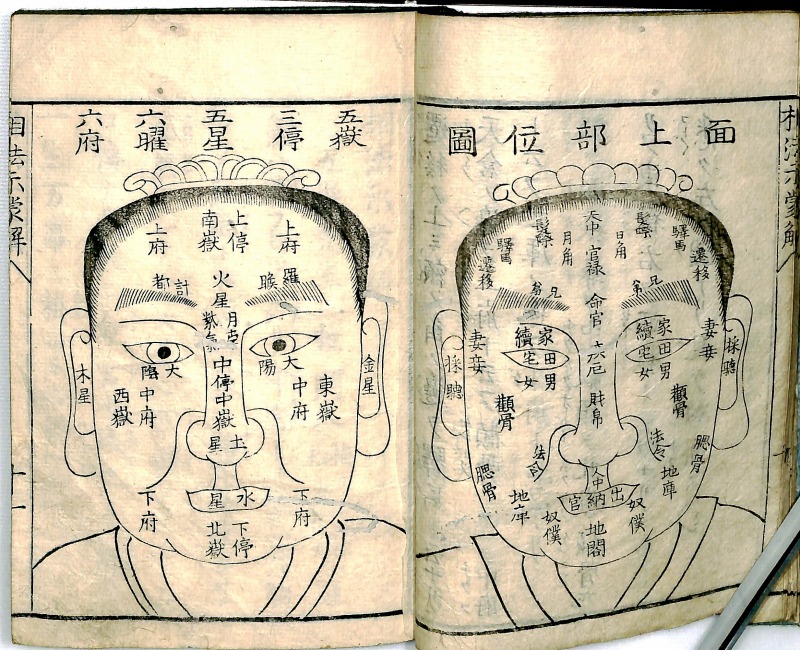 面上部位圖
相法示蒙解
天中
官禄
命宮
六厄
財帛
人中
出納官
地閣
日角
月角
髮際
髮際
驛馬
驛馬
遷移
遷移
兄弟
兄弟
家續
田宅
男女
家續
田宅
男女
妻妾
妻妾
採聽
採聽
顴骨
顴骨
法令
法令
腮骨
腮骨
地庫
地庫
奴僕
奴僕
五嶽
三停
五星
六曜
六府
相法示蒙解
十一
上府
上停
南嶽
上府
羅睺
計都
火星
月孛
紫気
太陽
太陰
金星
木星
東嶽
中府
中停中嶽
中府
西嶽
土星
水星
下府
下停
北嶽
下府